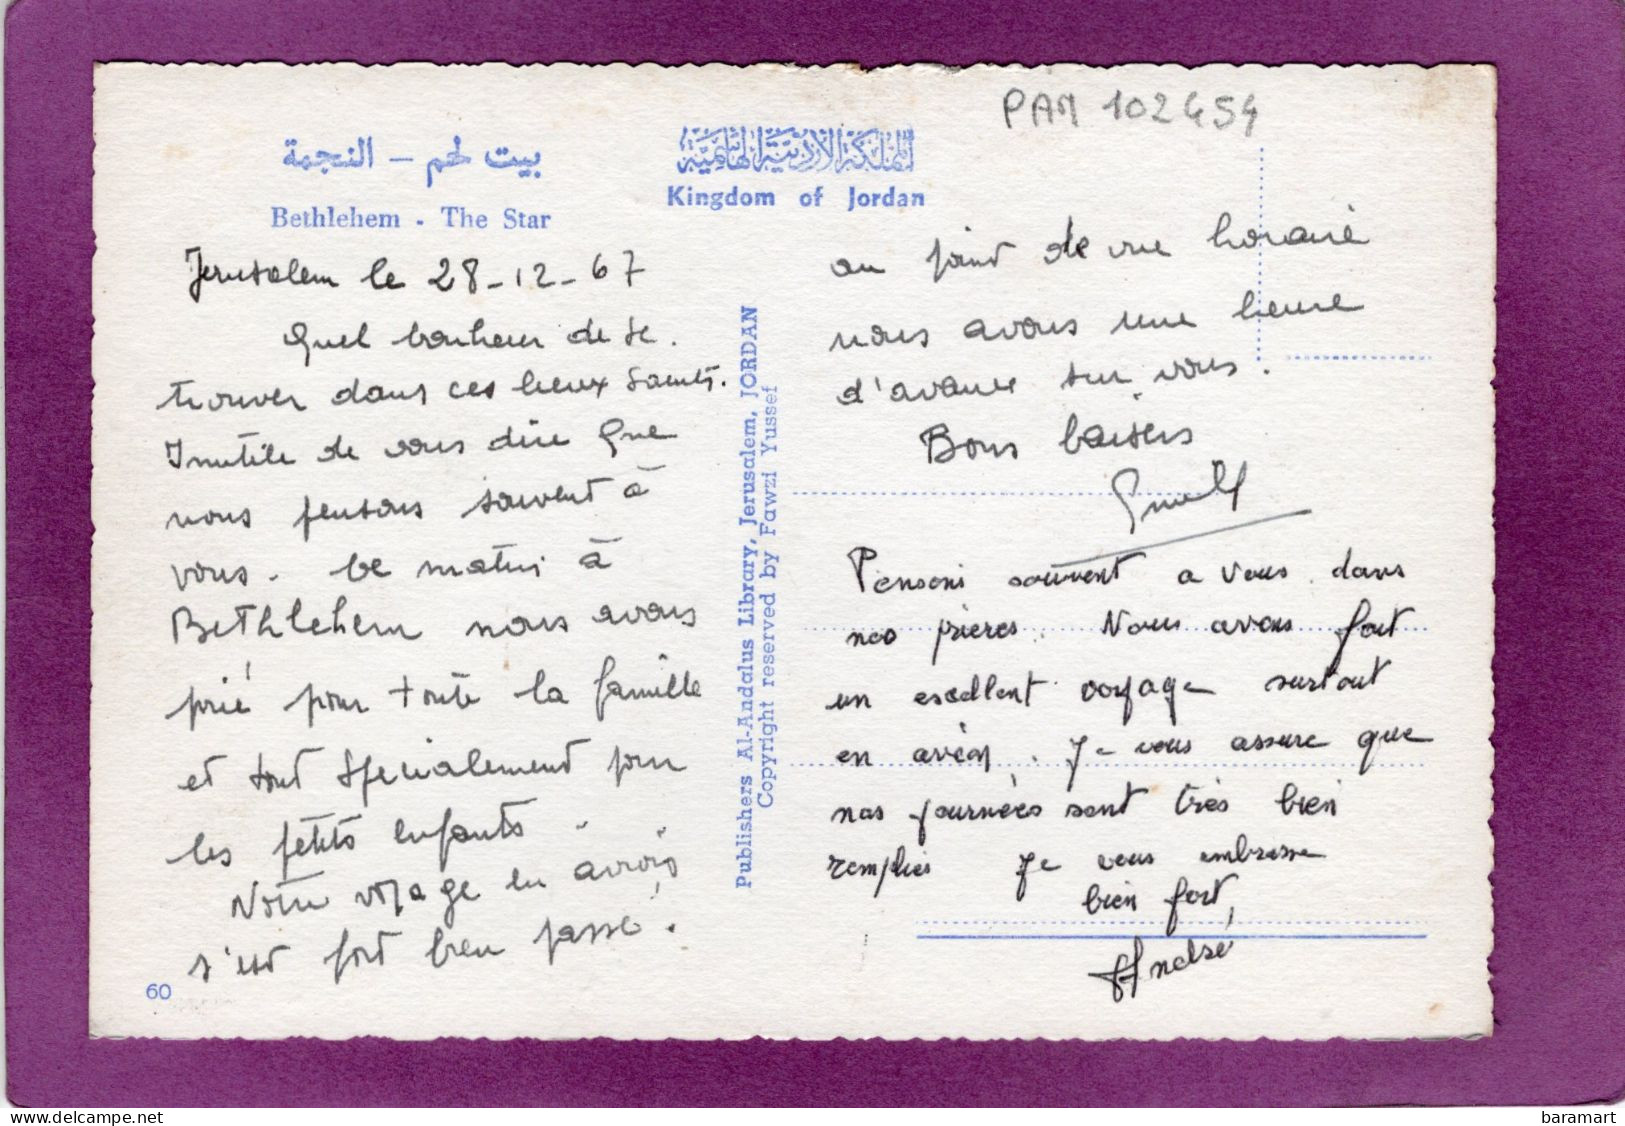 PAM 102454
بيت لحم – النجمة
Bethlehem - The Star
المملكة الأردنية الهاشمية
Kingdom of Jordan
Jerusalem le 28-12-67
Quel bonheur de se
trouver dans ces lieux Saints.
Inutile de vous dire que
nous pensons souvent à
vous. Ce matin à
Bethlehem nous avons
prié pour toute la famille
et tout spécialement pour
les petits enfants.
Notre voyage en avion
s'est fort bien passé.
60
Publishers Al-Andalus Library, Jerusalem, JORDAN
Copyright reserved by Fawzi Yussef
au point de vue horaire
nous avons une heure
d'avance sur vous.
Bons baisers
Pensons souvent a vous dans
nos prières. Nous avons fait
un excellent voyage surtout
en avion. Je vous assure que
nos journées sont très bien
remplies Je vous embrasse
bien fort,
Andrée
baramart